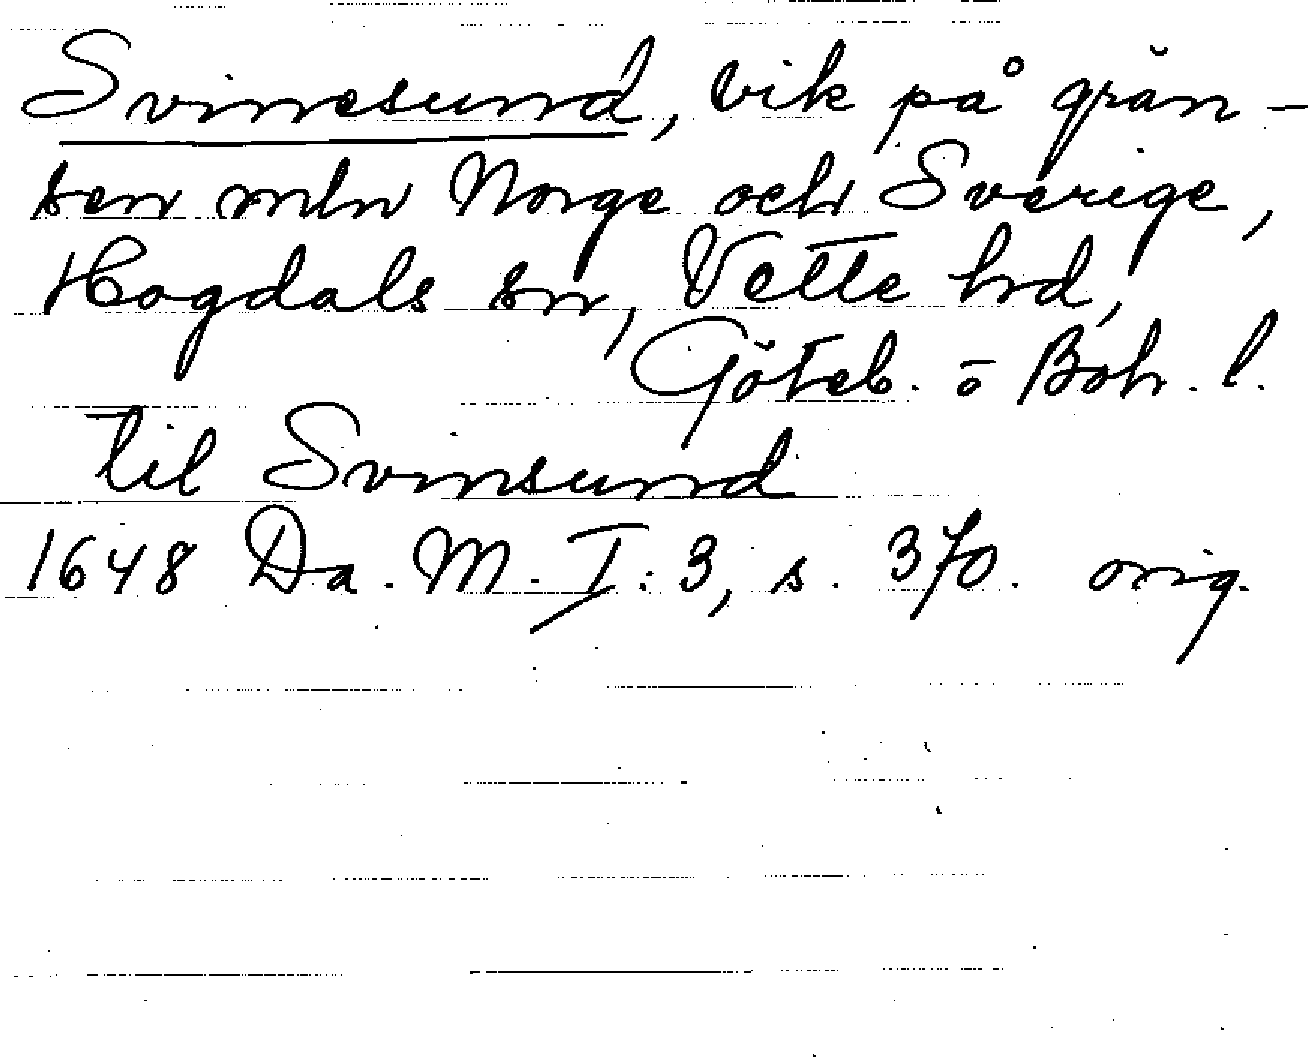 Svinesund, vik på grän-
sen mln Norge och Sverige,
Hogdals sn, Vette hd,
Göteb. o Boh. l.
til Svinsund
1648 Da. M. I: 3, s. 370. orig.